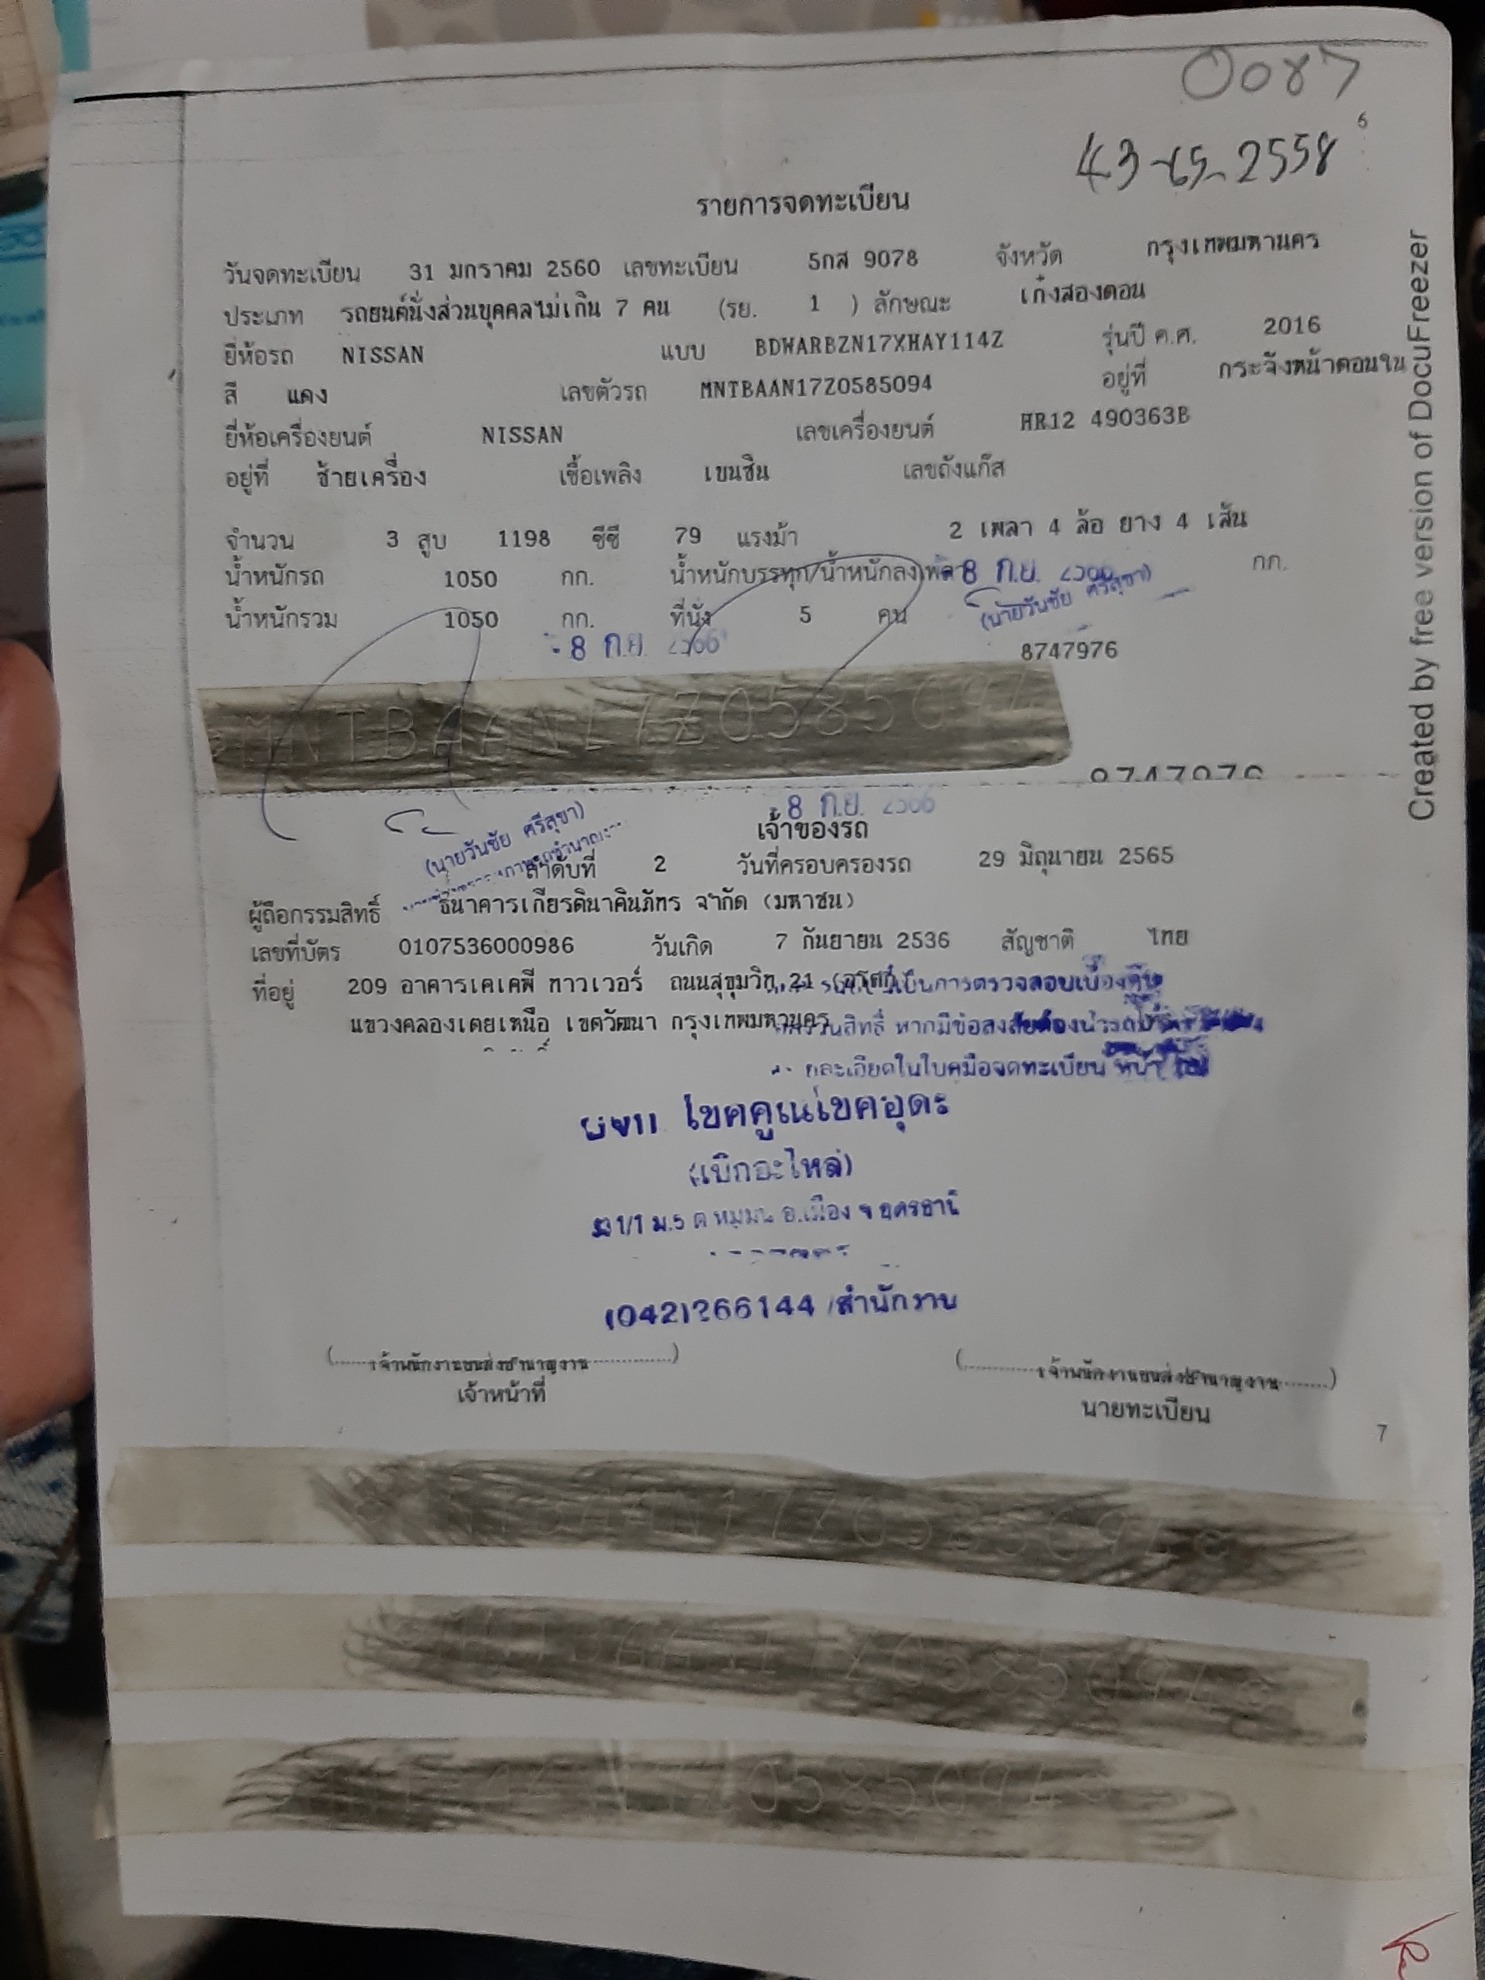 0087
6
2558
รายการจดทะเบียน
วันจดทะเบียน 31 มกราคม 2560 เลขทะเบียน 5กส 9078 จังหวัด กรุงเทพมหานคร
ประเภท รถยนต์นั่งส่วนบุคคลไม่เกิน 7 คน (รย. 1 ) ลักษณะ เก๋งสองตอน
ยี่ห้อรถ NISSAN แบบ BDWARBZN17XHAY114Z รุ่นปี ค.ศ. 2016
สี แดง เลขตัวรถ MNTBAAN17Z0585094 อยู่ที่ กระจังหน้าตอนใน
ยี่ห้อเครื่องยนต์ NISSAN เลขเครื่องยนต์ HR12 490363B
อยู่ที่ ซ้ายเครื่อง เชื้อเพลิง เบนซิน เลขถังแก๊ส
จำนวน 3 สูบ 1198 ซีซี 79 แรงม้า 2 เพลา 4 ล้อ ยาง 4 เส้น
น้ำหนักรถ 1050 กก. น้ำหนักบรรทุก/น้ำหนักลงเพลา 8 ก.ย. กก.
น้ำหนักรวม 1050 กก. ที่นั่ง 5 คน (นายวันชัย ศรีสุขา)
- 8 ก.ย. 2566 8747976
MNTBAAN17Z0585094
8747976
8 ก.ย. 2566
เจ้าของรถ
(นายวันชัย ศรีสุขา)
ลำดับที่ 2 วันที่ครอบครองรถ 29 มิถุนายน 2565
ผู้ถือกรรมสิทธิ์ ธนาคารเกียรตินาคินภัทร จำกัด (มหาชน)
เลขที่บัตร 0107536000986 วันเกิด 7 กันยายน 2536 สัญชาติ ไทย
ที่อยู่ 209 อาคารเคเคพี ทาวเวอร์ ถนนสุขุมวิท 21 (อโศก) เป็นการตรวจสอบเบื้องต้น
แขวงคลองเตยเหนือ เขตวัฒนา กรุงเทพมหานคร หากมีข้อสงสัยต้องนำรถ
ในใบคู่มือจดทะเบียน หน้า
โชคคูณโชคอุดร
(เบิกอะไหล่)
1/1 ม.5 อ.เมือง จ.อุดรธานี
(042)266144 /สำนักงาน
(เจ้าพนักงานขนส่งชำนาญงาน) (เจ้าพนักงานขนส่งชำนาญงาน)
เจ้าหน้าที่ นายทะเบียน
7
MNTBAAN17Z0585094
MNTBAAN17Z0585094
17Z0585094
Created by free version of DocuFreezer